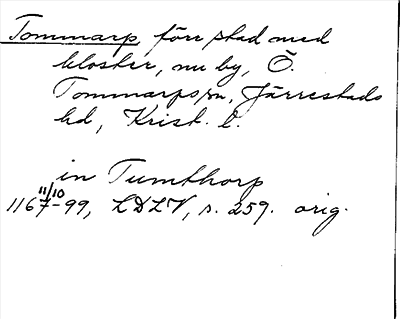 Tommarp förr stad med
kloster, nu by, Ö.
Tommarps sn, Järrestads
hd, Krist. l.
in Tumthorp
11/10
1167-99, LDLV, s. 259. orig.